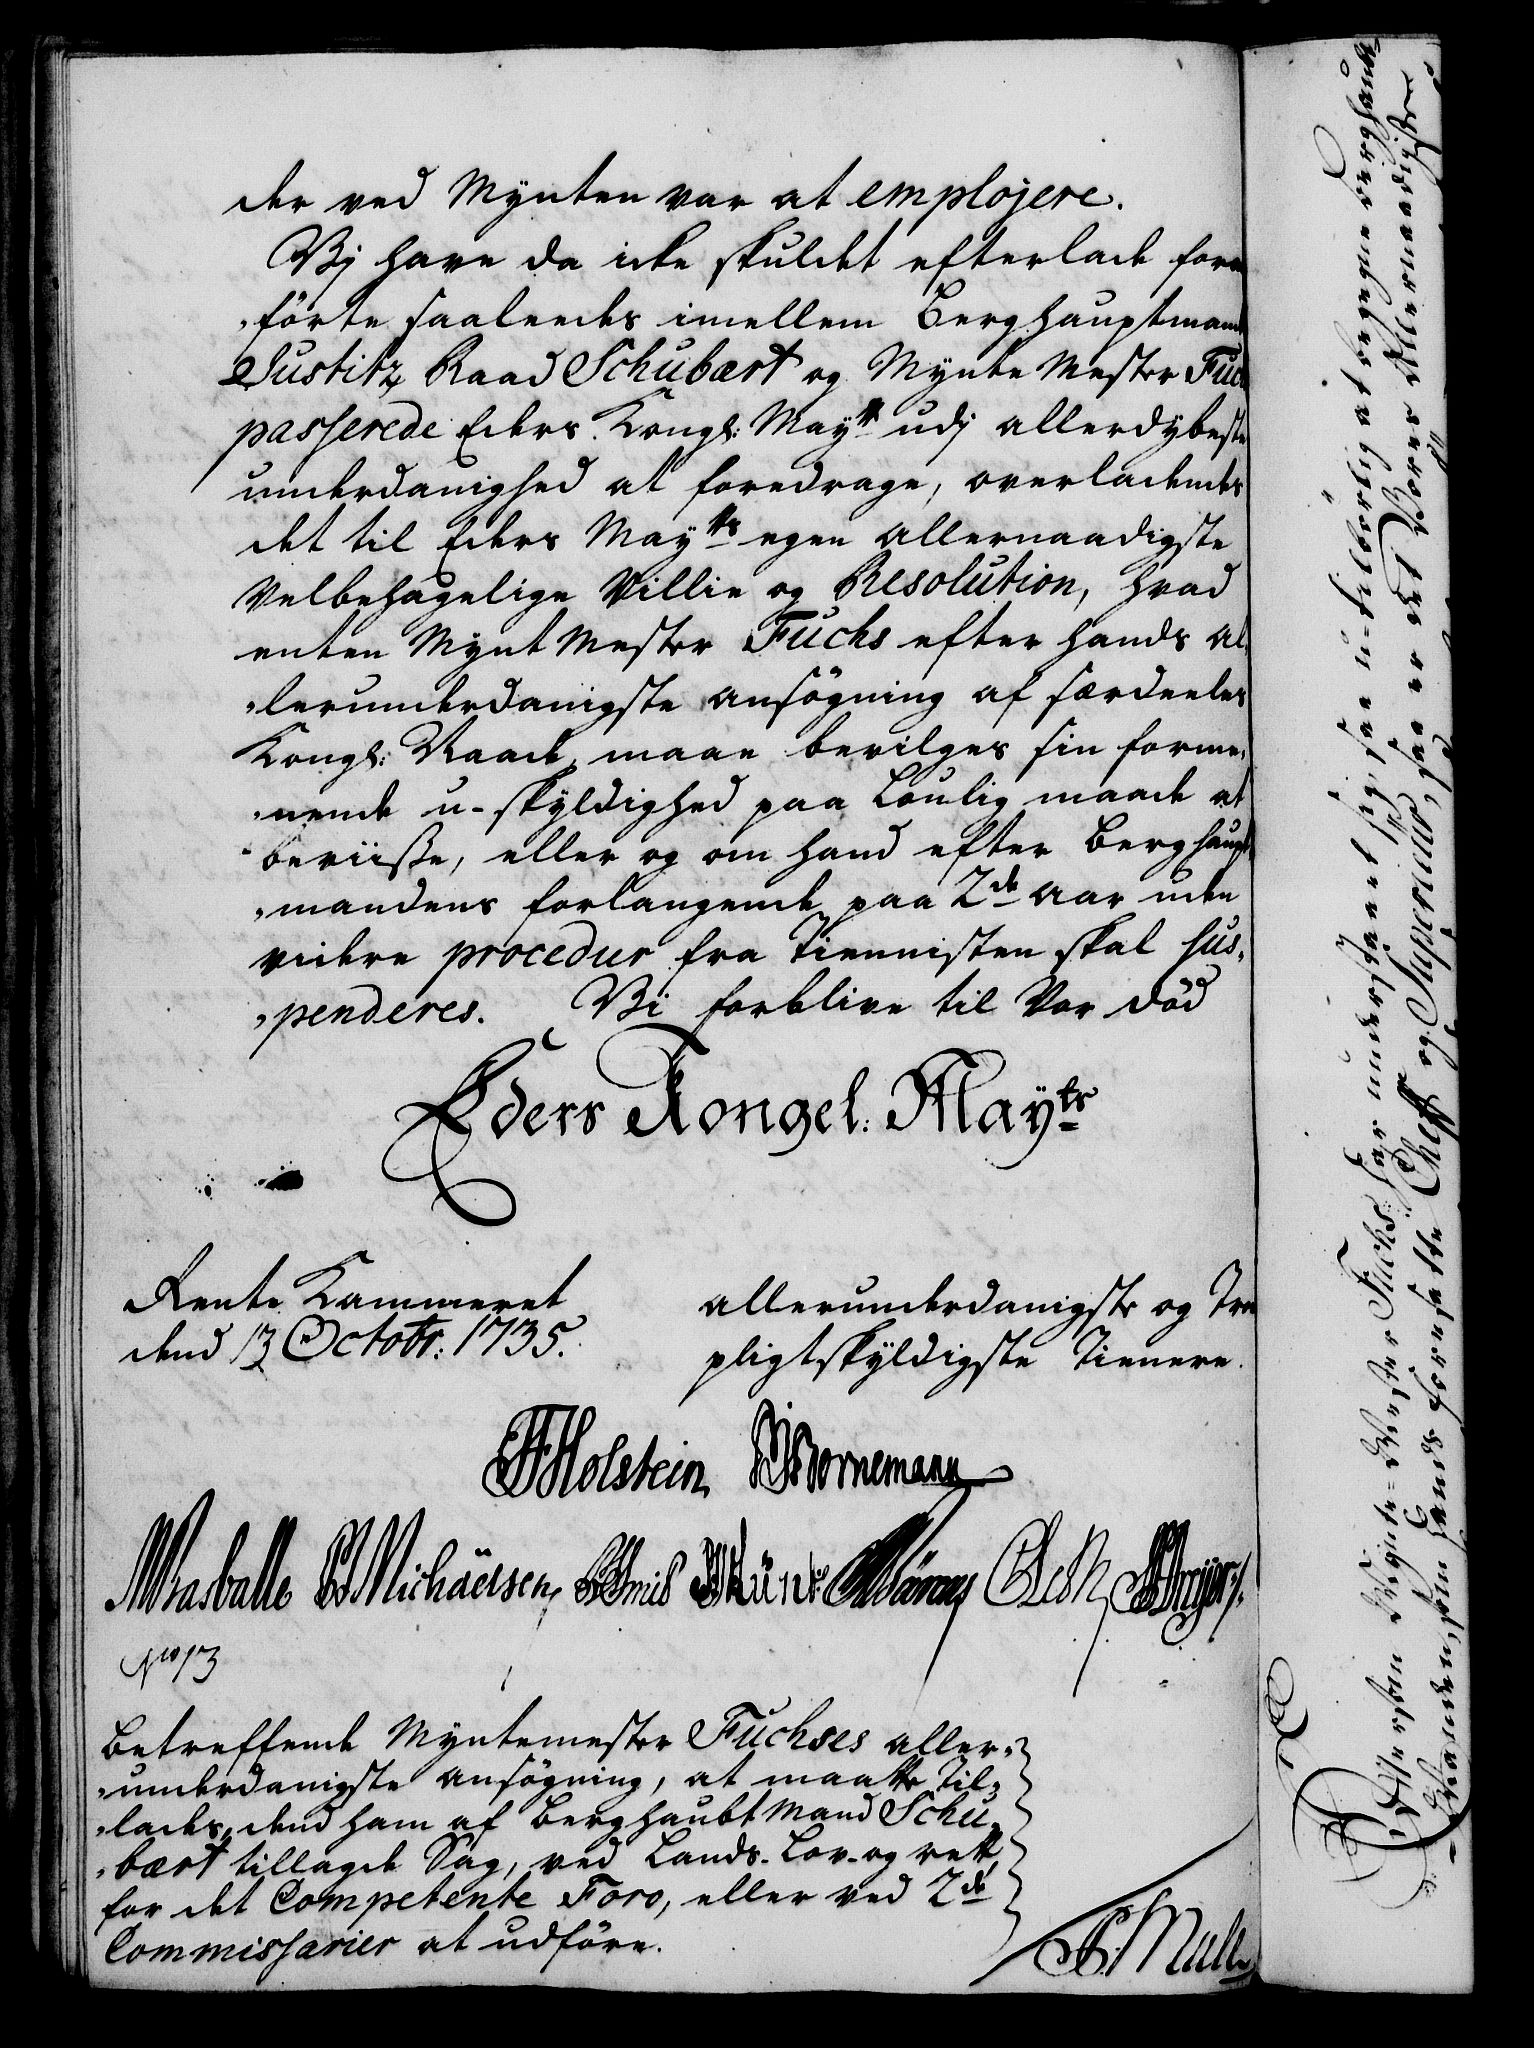 der ved Mynten var at emplojere.
Vj have da icke skuldet efterlade foran
„förte saaleedes imellem Berghauptmand
Justitz Raad Schubært og Mynte Mester Fuchs
passerede Eders Kongl: Mayts udj allerdybeste
underdanighed at foredrage, overladendes
det til Eders Mayts egen allernaadigste
Velbehagelige Villie og Resolution, hvad
enten Mynt Mester Fuchs efter hands al„
„lerunderdanigste ansögning af særdeeles
Kongl: Naade, maae bevilges sin forme„
„nende u-skyldighed paa Loulig maade at
beviisse, eller og om hand efter Berghaupt„
„mandens forlangende paa 2de aar uden
videre procedur fra Tiennisten skal sus„
„penderes. Vi forblive til Vor död
Eders Kongel: Mayts
Rente Kammeret
dend 13 Octobr: 1735.
allerunderdanigste og Troe
pligtskyldigste Tienere.
Holstein Bornemann
Wrasballe Michaelsen
No 13
Betreffende Myntemester Fuchses aller„
„underdanigste ansögning, at maatte Til„
„lades, dend ham af Berghaubt Mand Schu„
„bært tillagde Sag, ved Lands-Lov-og rett
for det Competente Foro, eller ved 2de
Commissarier at udföre.
Efftersom Mynte-Mester Fuchs har understaaet sig saa u-tilbörlig at begegne Berghaubt-
Manden, som hands foresatte Cheff og Superieur, saa er det Vores Allernaadigste